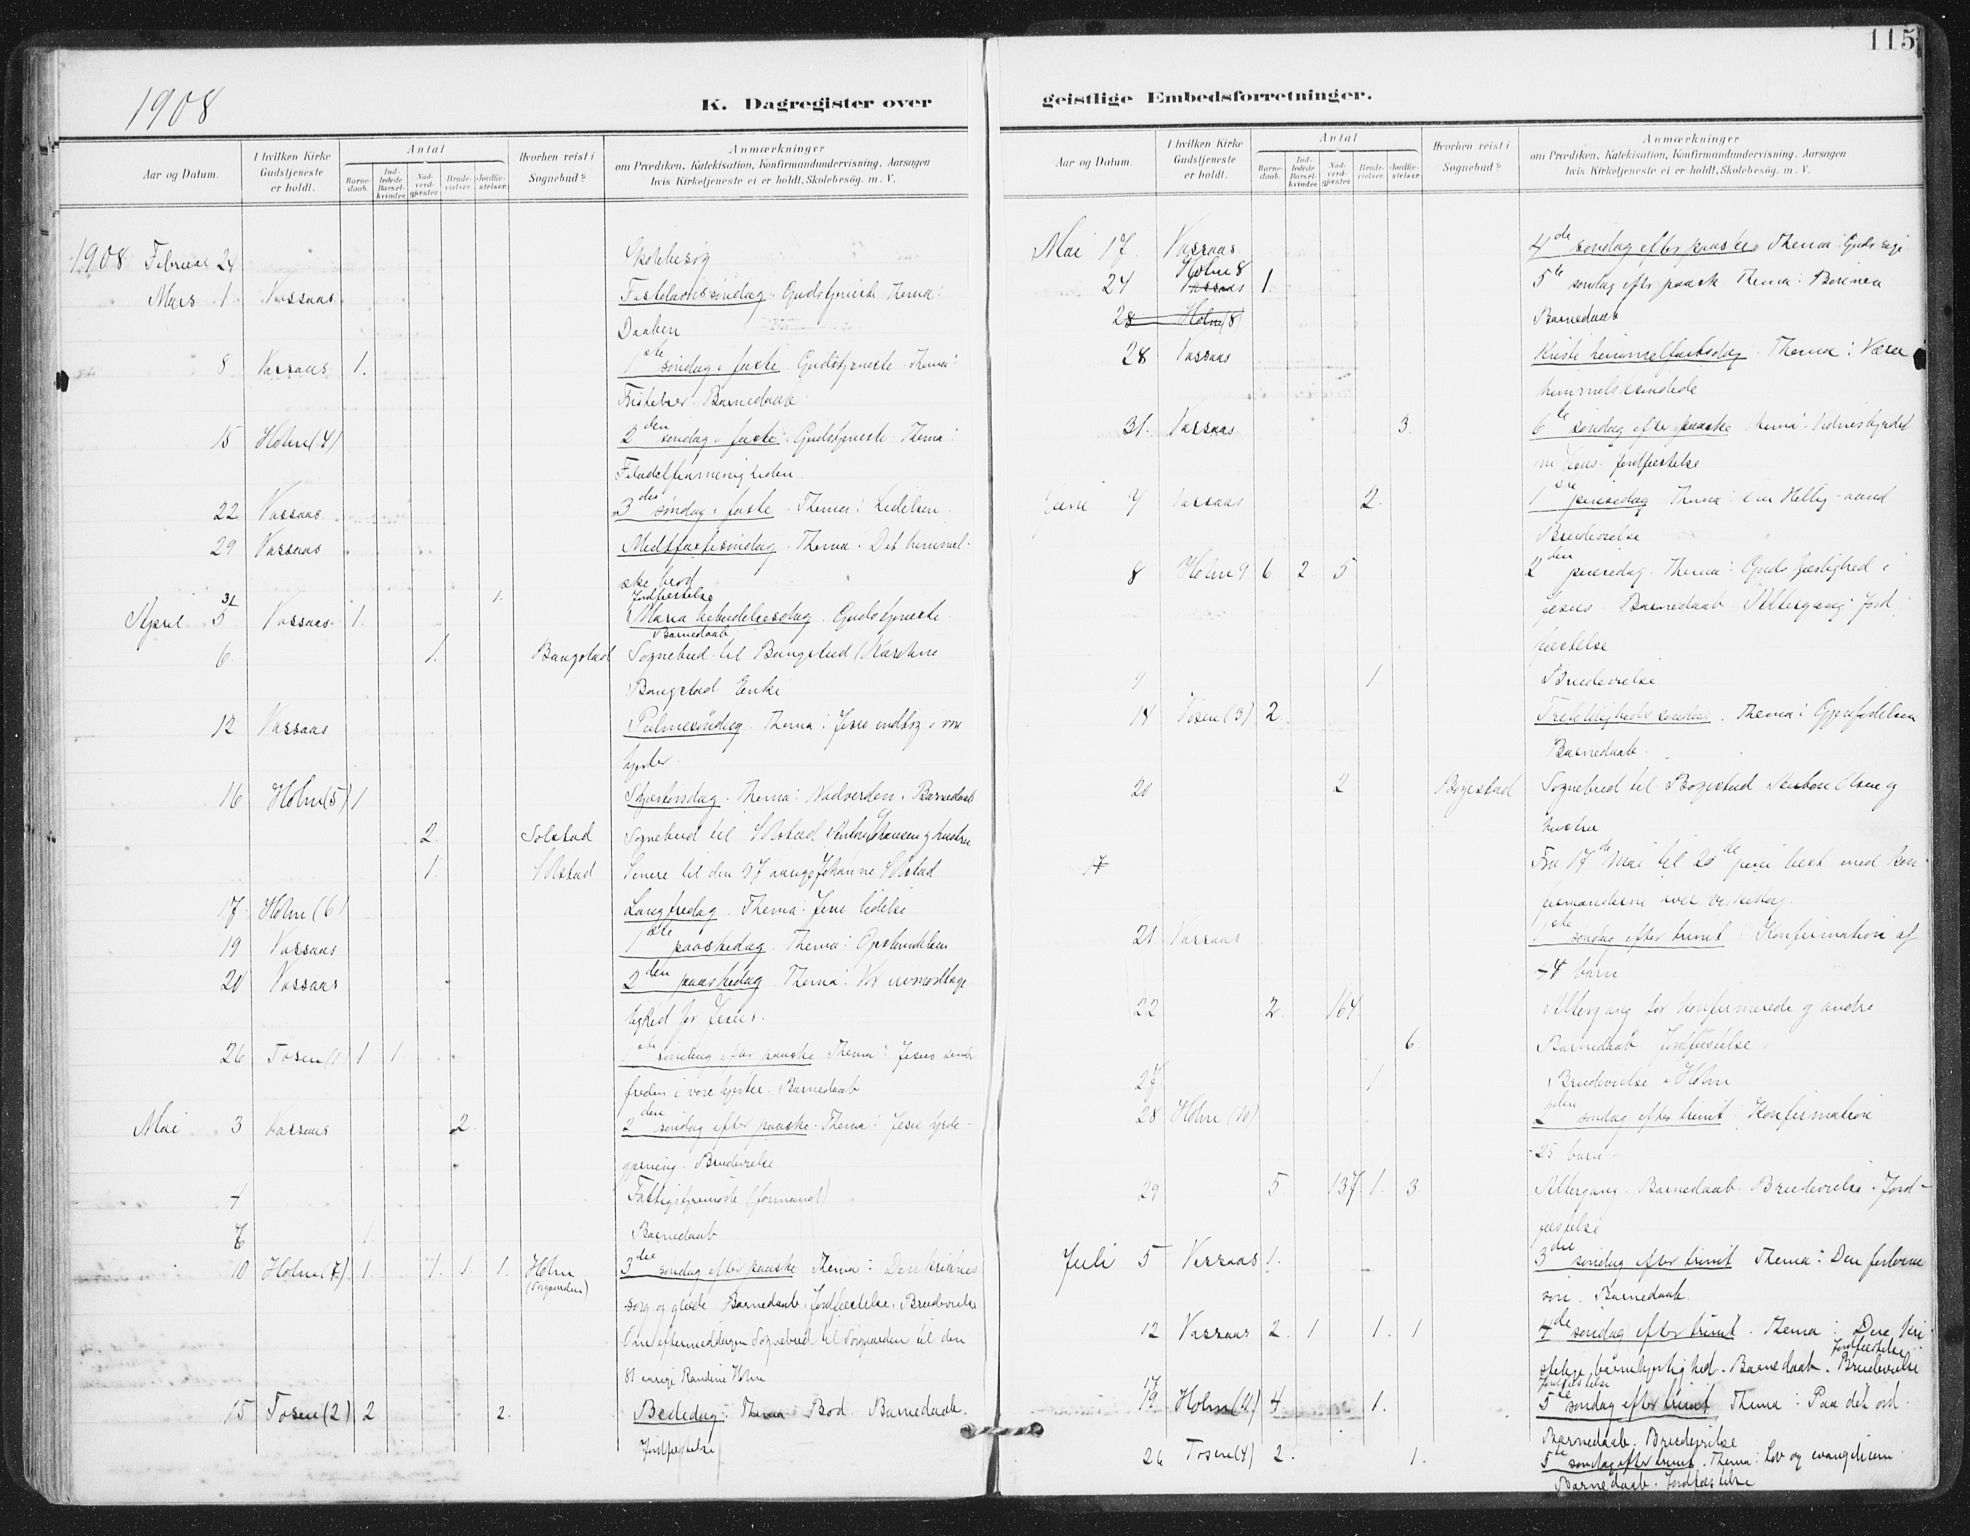 115
1908
K. Dagregister over
geistlige Embedsforretninger.
Aar og Datum.
I hvilken Kirke Gudstjeneste er holdt.
Antal
Barnedaab.
Indledede Barselkvinder.
Nadverdgjester.
Brudevielser.
Jordfæstelser.
Hvorhen reist i Sognebud?
Anmærkninger
om Prædiken, Katekisation, Konfirmandundervisning, Aarsagen
hvis Kirketjeneste ei er holdt, Skolebesøg. m. V.
1908 Februar 24 Skolebesøg
Mars 1 Vassaas Fastelavnssøndag. Gudstjeneste Thema:
Daaben
8 Vassaas 1. 1ste søndag i faste. Gudstjeneste. Thema:
Fristelser. Barnedaab.
15 Holm (4) 2den søndag i faste. Gudstjeneste Thema:
Filadelfiamenigheden.
22 Vassaas 3die søndag i faste. Thema: Lidelsen.
29 Vassaas Midtfastesøndag. Thema: Det himmel-
ske brød
31 1. Jordfæstelse
April 5 Vassaas 1. Maria bebudelsesdag. Gudstjeneste.
Barnedaab
6 1. Bangstad Sognebud til Bangstad (Karoline
Bangstad Enke
12 Vassaas Palmesøndag. Thema: Jesu indtog i vore
hjerter.
16 Holm (5) 1 Skjærtorsdag. Thema: Nadverden. Barnedaab
2. Solstad Sognebud til Solstad Johansen og hustru
1. Solstad Senere til den 97 aarige Johanne Solstad
17 Holm (6) Langfredag. Thema: Jesu lidelse
19 Vassaas 1ste paaskedag. Thema: Opstandelsen
20 Vassaas 2den paaskedag. Thema: Vor
for Jesus.
26 Tosen (1) 1 1. 1ste søndag efter paaske Thema: Jesus sender
freden i vore hjerter. Barnedaab
Mai 3 Vassaas 2. 2den søndag efter paaske. Thema: Jesu hyrde-
gjerning. Brudevielse
4 Fattigstyremøde (formand)
7 1. Barnedaab
10 Holm (7) 1. 1. 1. 1. Holm (Torgaarden) 3die søndag efter paaske Thema: Den kristnes
sorg og glæde. Barnedaab. Jordfæstelse. Brudevielse
Om eftermiddagen Sognebud til Torgaarden til den
81 aarige Randine Holm
15 Tosen (2) 2 2. Bededag: Thema Bod. Barnedaab.
Jordfæstelse
Aar og Datum.
I hvilken Kirke Gudstjeneste er holdt.
Antal
Barnedaab.
Indledede Barselkvinder.
Nadverdgjester.
Brudevielser.
Jordfæstelser.
Hvorhen reist i Sognebud?
Anmærkninger
om Prædiken, Katekisation, Konfirmandundervisning. Aarsagen
hvis Kirketjeneste ei er holdt, Skolebesøg. m. V.
Mai 17. Vassaas 4de søndag efter paaske Thema: Guds
24 Holm 8 Vassaas 1. 5te søndag efter paaske. Thema: Bønnen
Barnedaab
28 Holm (8)
28 Vassaas Kristi himmelfartsdag. Thema: Være
himmelsksindede
31. Vassaas 3. 6te søndag efter paaske Thema: Vidnesbyrdet
om Jesus. Jordfæstelse
Juni 7 Vassaas 2. 1ste pinsedag Thema: Den Hellig-aand
Brudevielse
8 Holm 9 6 2. 5 2den pinsedag. Thema: Guds kjærlighed i
Jesus. Barnedaab Altergang. Jord-
fæstelse
9 1 Brudevielse
14 Tosen (3) 2 Trefoldighedssøndag. Thema: Gjenfødelsen
Barnedaab.
20 2 Bogestad Sognebud til Bogestad Olsen og
hustru
17 Fra 17de Mai til 20de juni læst med kon-
firmanderne
21 Vassaas 1ste søndag efter trinit: Konfirmation af
44 barn
22 2. 164 Altergang for Konfirmerede og andre
6. Barnedaab Jordfæstelse
27 1. Brudevielse i Holm
28 Holm (10) 2den søndag efter trinit: Konfirmation
25 barn
29 5 137 1. 3 Altergang. Barnedaab. Brudevielse. Jord-
fæstelse
Juli 5 Vassaas 1. 3die søndag efter trinit Thema: Den fortabne
søn. Barnedaab.
12 Vassaas 2. 1 1. 1 4de søndag efter trinit. Thema: Den kri-
stelige barmhjertighed. Barnedaab. Brudevielse Jordfæstelse
17 Jordfæstelse
19 Holm (11) 4 1. 5te søndag efter trinit Thema: Paa det ord.
Barnedaab. Brudevielse
26 Tosen (4) 2. 1. 5te søndag efter trinit. Thema: Lov og evangelium
Barnedaab. Jordfæstelse